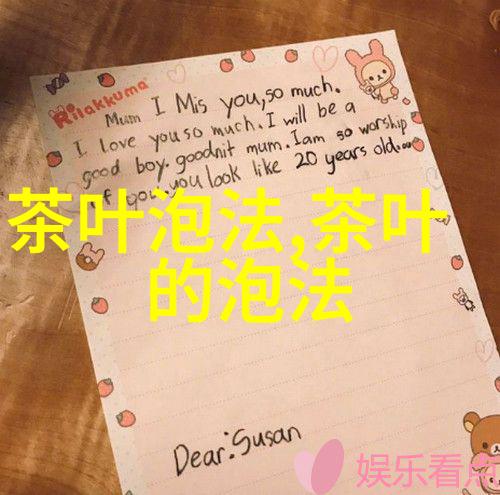 Rilakkuma
Mum I Mis you,so much.
I love you so much. I will be a
good boy. goodnit mum. Iam so worship
of you.you look like 20 years old.
茶叶泡法,茶叶
的泡法
Dear:Susan
娱乐看点